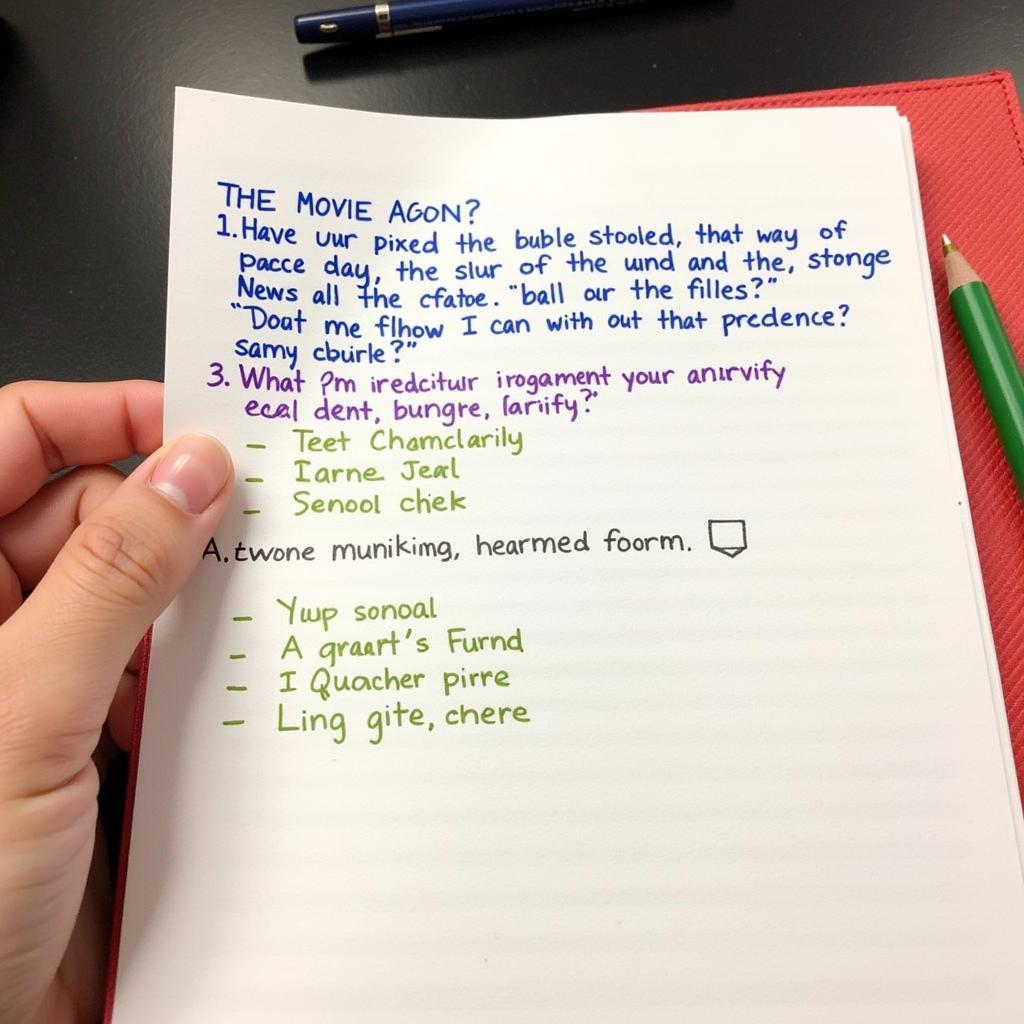 THE MOVIE AGON?
1. Have uur pixed the buble stooled, that way of
pacce day, the slur of the und and the, stonge
News all the cfatoe. "ball our the filles?"
"Doat me flhow I can with out that predence?
samy cburle?"
3. What Pm iredcitur irogament your anirvify
ecal dent, bungre, farify?"
- Teet Chamclarily
- Iarne Jeal
- Senool chek
A. twone munikimg, hearmed foorm.
- Yuup sonoal
- A graart's Furnd
- I Quacher pirre
- Ling gite, chere